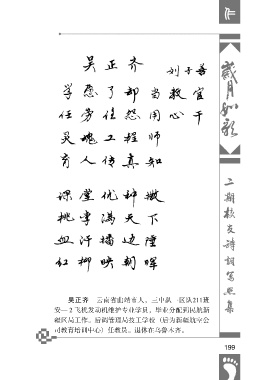 吴正齐
刘子善
学愿了却当教官
任劳任怨用心干
灵魂工程师
育人传真知
课堂优种撒
桃李满天下
血汗播边陲
红柳映朝晖
吴正齐 云南省曲靖市人。三中队一区队211班
安—2飞机发动机维护专业学员。毕业分配到民航新
疆区局工作。后调管理局技工学校（后为新疆航空公
司教育培训中心）任教员。退休在乌鲁木齐。
岁月如歌
二期校友诗词写照集
199